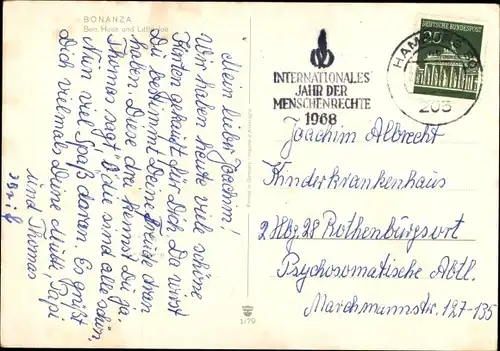 BONANZA
Ben, Hoss und Little Joe
Mein lieber Joachim!
Wir haben heute viele schöne
Karten gekauft für Dich. Du wirst
Du bestimmt Deine Freude dran
haben. Diese drei kennst Du ja.
Thomas sagt "O die sind alle schön.
Nun viel Spaß daran. Es grüßt
Dich vielmals Deine Mutti, Papi
und Thomas
INTERNATIONALES
JAHR DER
MENSCHENRECHTE
1968
DEUTSCHE BUNDESPOST
HAMBURG
Joachim Albrecht
Kinderkrankenhaus
2 Hbg 28 Rothenburgsort
Psychosomatische Abtl.
Marchmannstr. 127-135
1/79